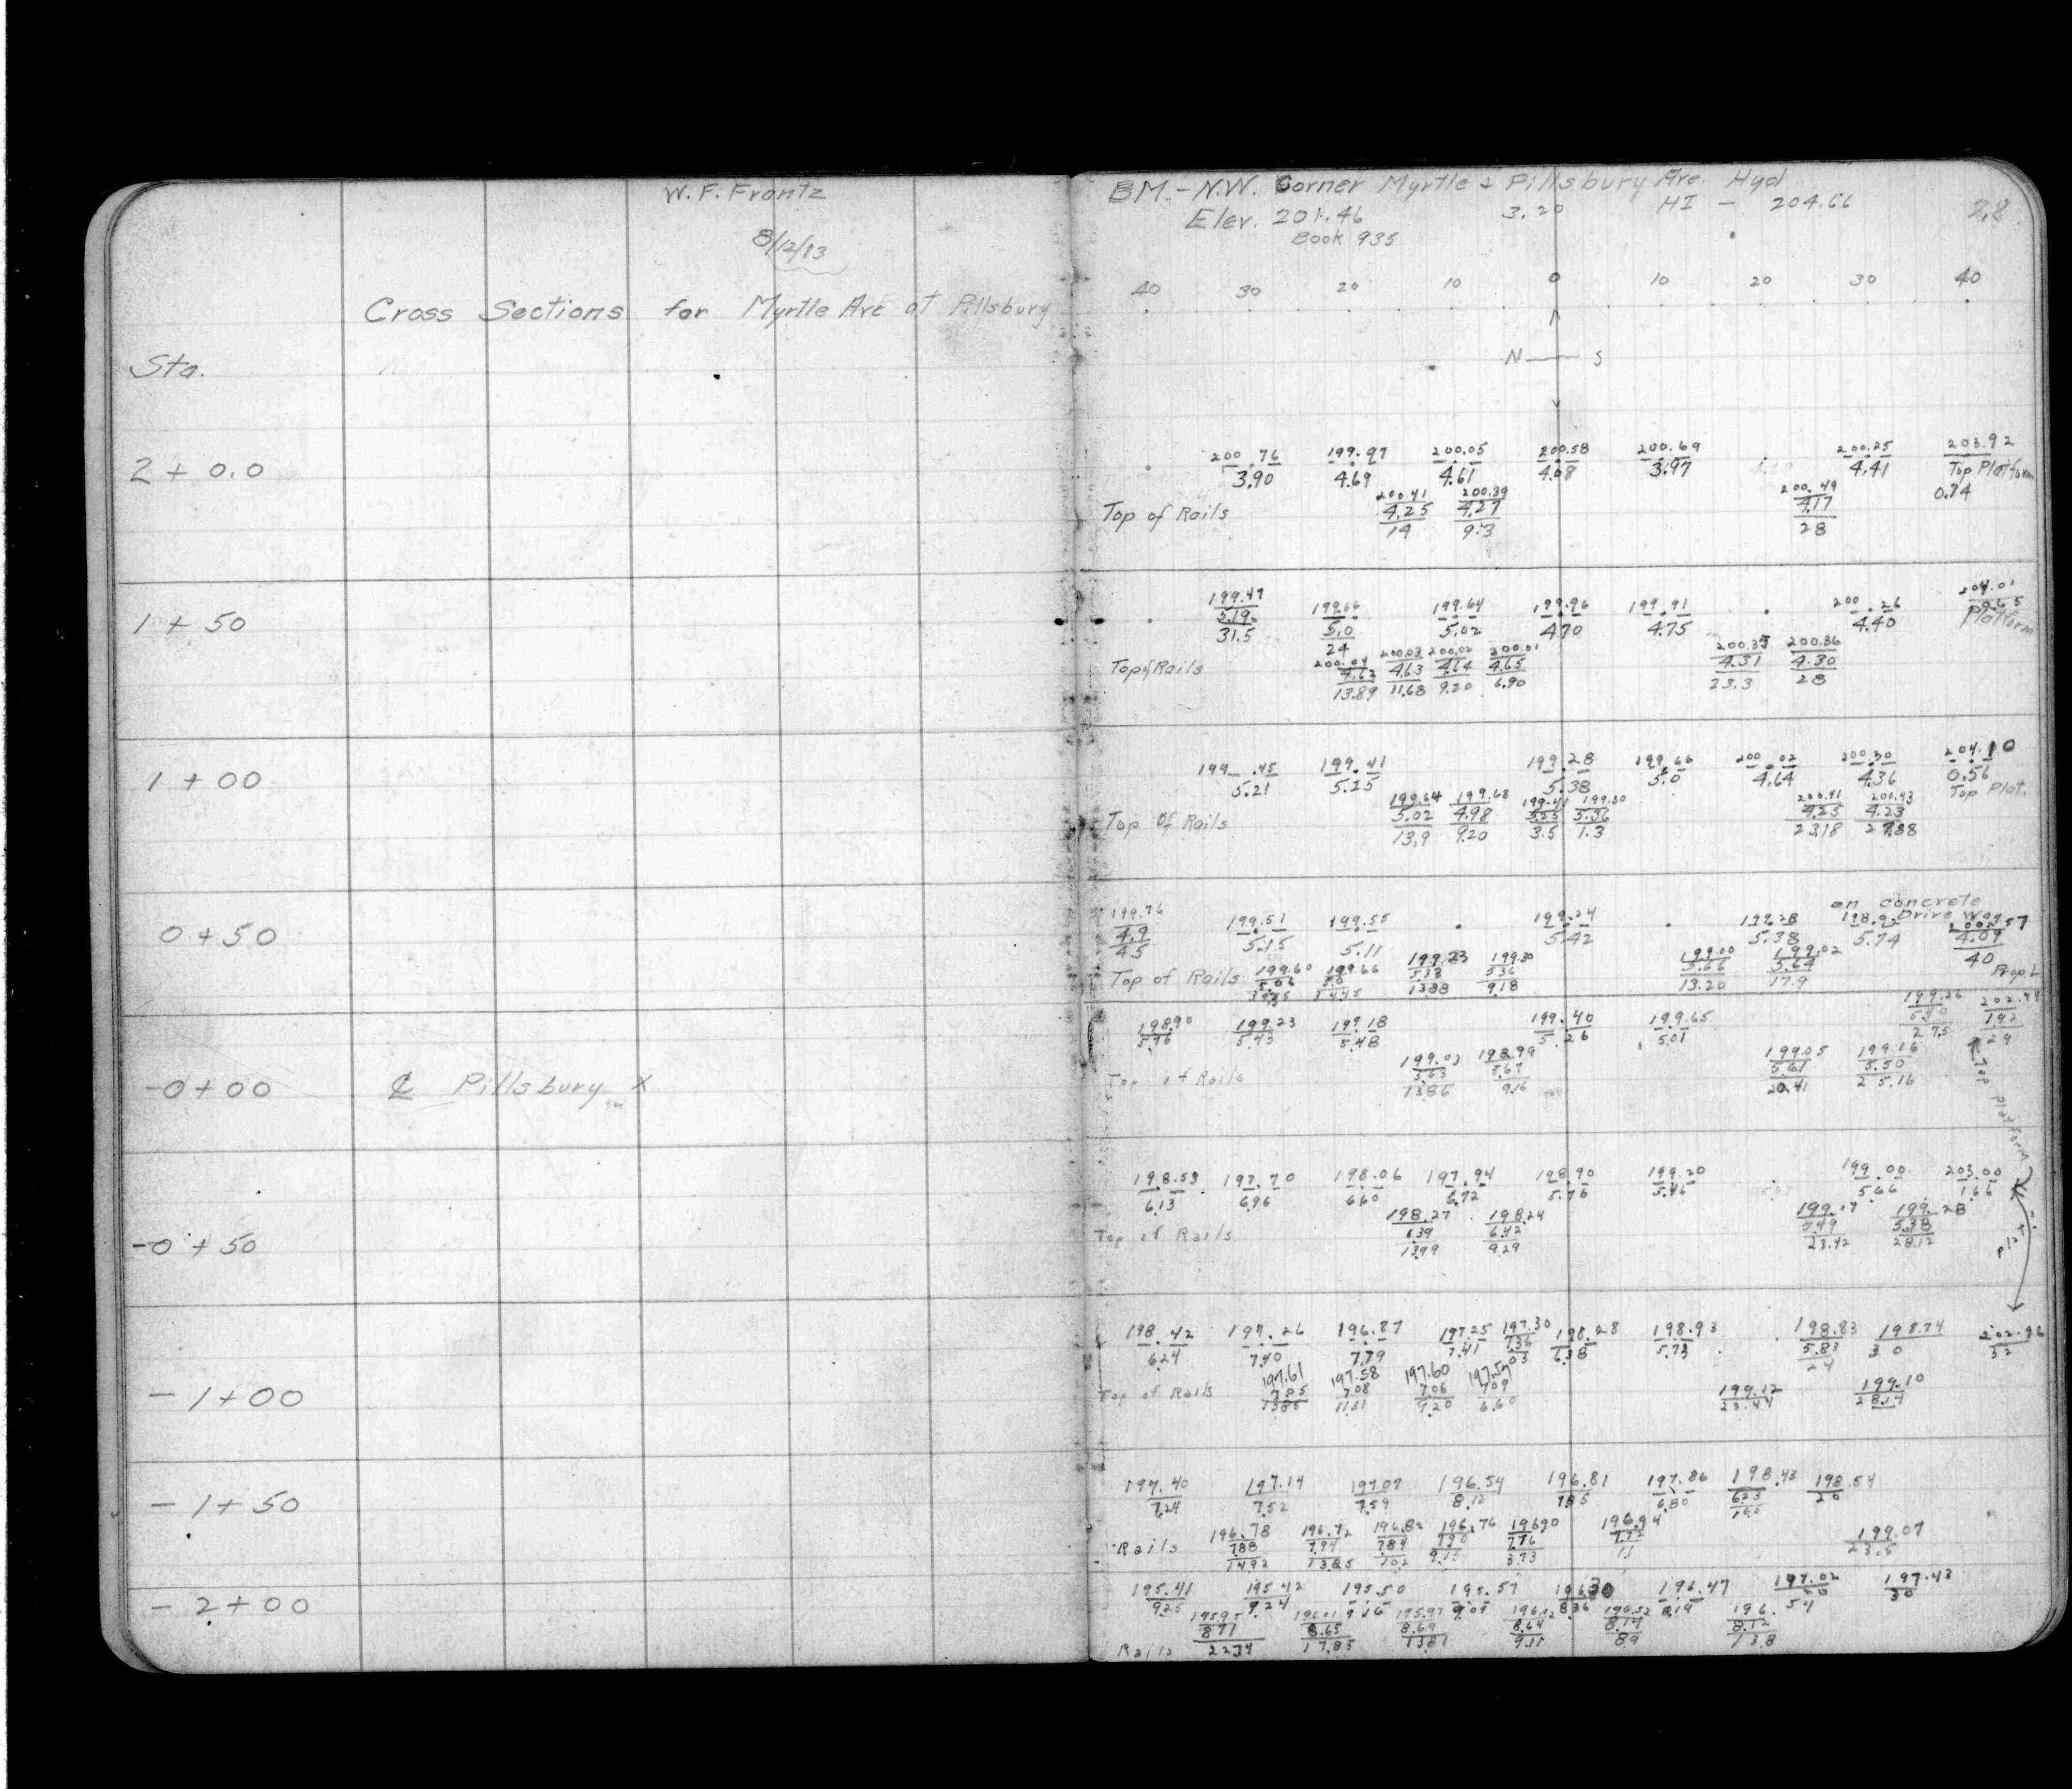 W. F. Frantz
8/12/13
Cross Sections for Myrtle Ave at Pillsbury
Sta.
2 + 0.0
1 + 50
1 + 00
0 + 50
-0 + 00 ℄ Pillsbury
-0 + 50
- 1 + 00
- 1 + 50
- 2 + 00
BM.- N.W. Corner Myrtle & Pillsbury Ave. Hyd
Elev. 201.46 3.20 HI - 204.66
Book 935
28
40 30 20 10 0 10 20 30 40
N S
200.76 199.97 200.05 200.58 200.69 200.25 203.92
3.90 4.69 4.61 4.08 3.97 4.41 Top Platform
200.41 200.39 200.49 0.74
Top of Rails 4.25 4.27 4.17
14 9.3 28
199.47 199.66 199.64 199.96 199.91 200.26 204.01
5.19 5.0 5.02 4.70 4.75 4.40 Platform
31.5 24
200.04 200.03 200.02 200.01 200.35 200.36
Top of Rails 4.62 4.63 4.64 4.65 4.31 4.30
13.89 11.68 9.20 6.90 23.3 28
199.45 199.41 199.28 199.66 200.02 200.30 204.10
5.21 5.25 5.38 5.0 4.64 4.36 0.56
Top Plat.
199.64 199.68 199.41 199.30 200.41 200.43
Top Of Rails 5.02 4.98 5.25 5.36 4.25 4.23
13.9 9.20 3.5 1.3 23.18 27.88
on concrete
Drive Way
199.76 199.51 199.55 199.24 199.28 198.92 200.57
4.9 5.15 5.11 5.42 5.38 5.74 4.09
45 40
Prop. L
199.60 199.66 199.23 199.30 199.00 199.02
Top of Rails 5.06 5.0 5.33 5.36 5.66 5.64
13.88 9.18 13.20 17.9
198.90 199.23 199.18 199.40 199.65 199.26 202.74
5.76 5.43 5.48 5.26 5.01 5.40 1.92
27.5 29
199.03 198.99 199.05 199.16
Top of Rails 5.63 5.67 5.61 5.50
13.86 9.16 20.41 25.16
Top Platform
198.53 197.70 198.06 197.94 198.90 199.20 199.00 203.00
6.13 6.96 6.60 6.72 5.76 5.46 5.66 1.66
198.27 198.24 199.17 199.28
Top of Rails 6.39 6.42 5.49 5.38
13.99 9.29 23.42 28.12
Plat.
198.42 197.26 196.87 197.25 197.30 198.28 198.93 198.83 198.74 202.96
6.24 7.40 7.79 7.41 7.36 6.38 5.73 5.83 30 32
24
197.61 197.58 197.60 197.57 199.12 199.10
Top of Rails 7.05 7.08 7.06 7.09 23.44 28.14
13.85 11.51 9.20 6.60
197.40 197.14 197.07 196.54 196.81 197.86 198.43 198.54
7.24 7.52 7.59 8.12 7.85 6.80 6.23 20
196.78 196.72 196.82 196.76 196.90 196.94 199.07
Rails 7.88 7.94 7.84 7.90 7.76 7.72 23.5
14.92 13.85 10.2 9.15 3.73 1.1
195.41 195.42 195.50 195.57 196.30 196.47 197.02 197.43
9.25 9.24 9.16 9.09 8.36 8.19 30
195.95 196.01 195.97 196.02 196.52
8.71 8.65 8.69 8.64 8.14 8.12
Rails 22.34 17.85 13.81 9.11 8.9 13.8